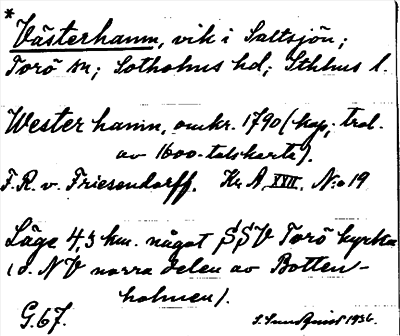 * Västerhamn, vik i Saltsjön;
Torö sn; Sotholms hd; Sthlms l.
Wester hamn, omkr. 1790 (kop; trol.
av 1600-talskarta).
F.R. v. Friesendorff. Kr A XVII. N:o 19
Läge 4,3 km. något SSV Torö kyrka
(d. NV norra delen av Botten-
holmen).
G.67. S. Sundquist 1936.